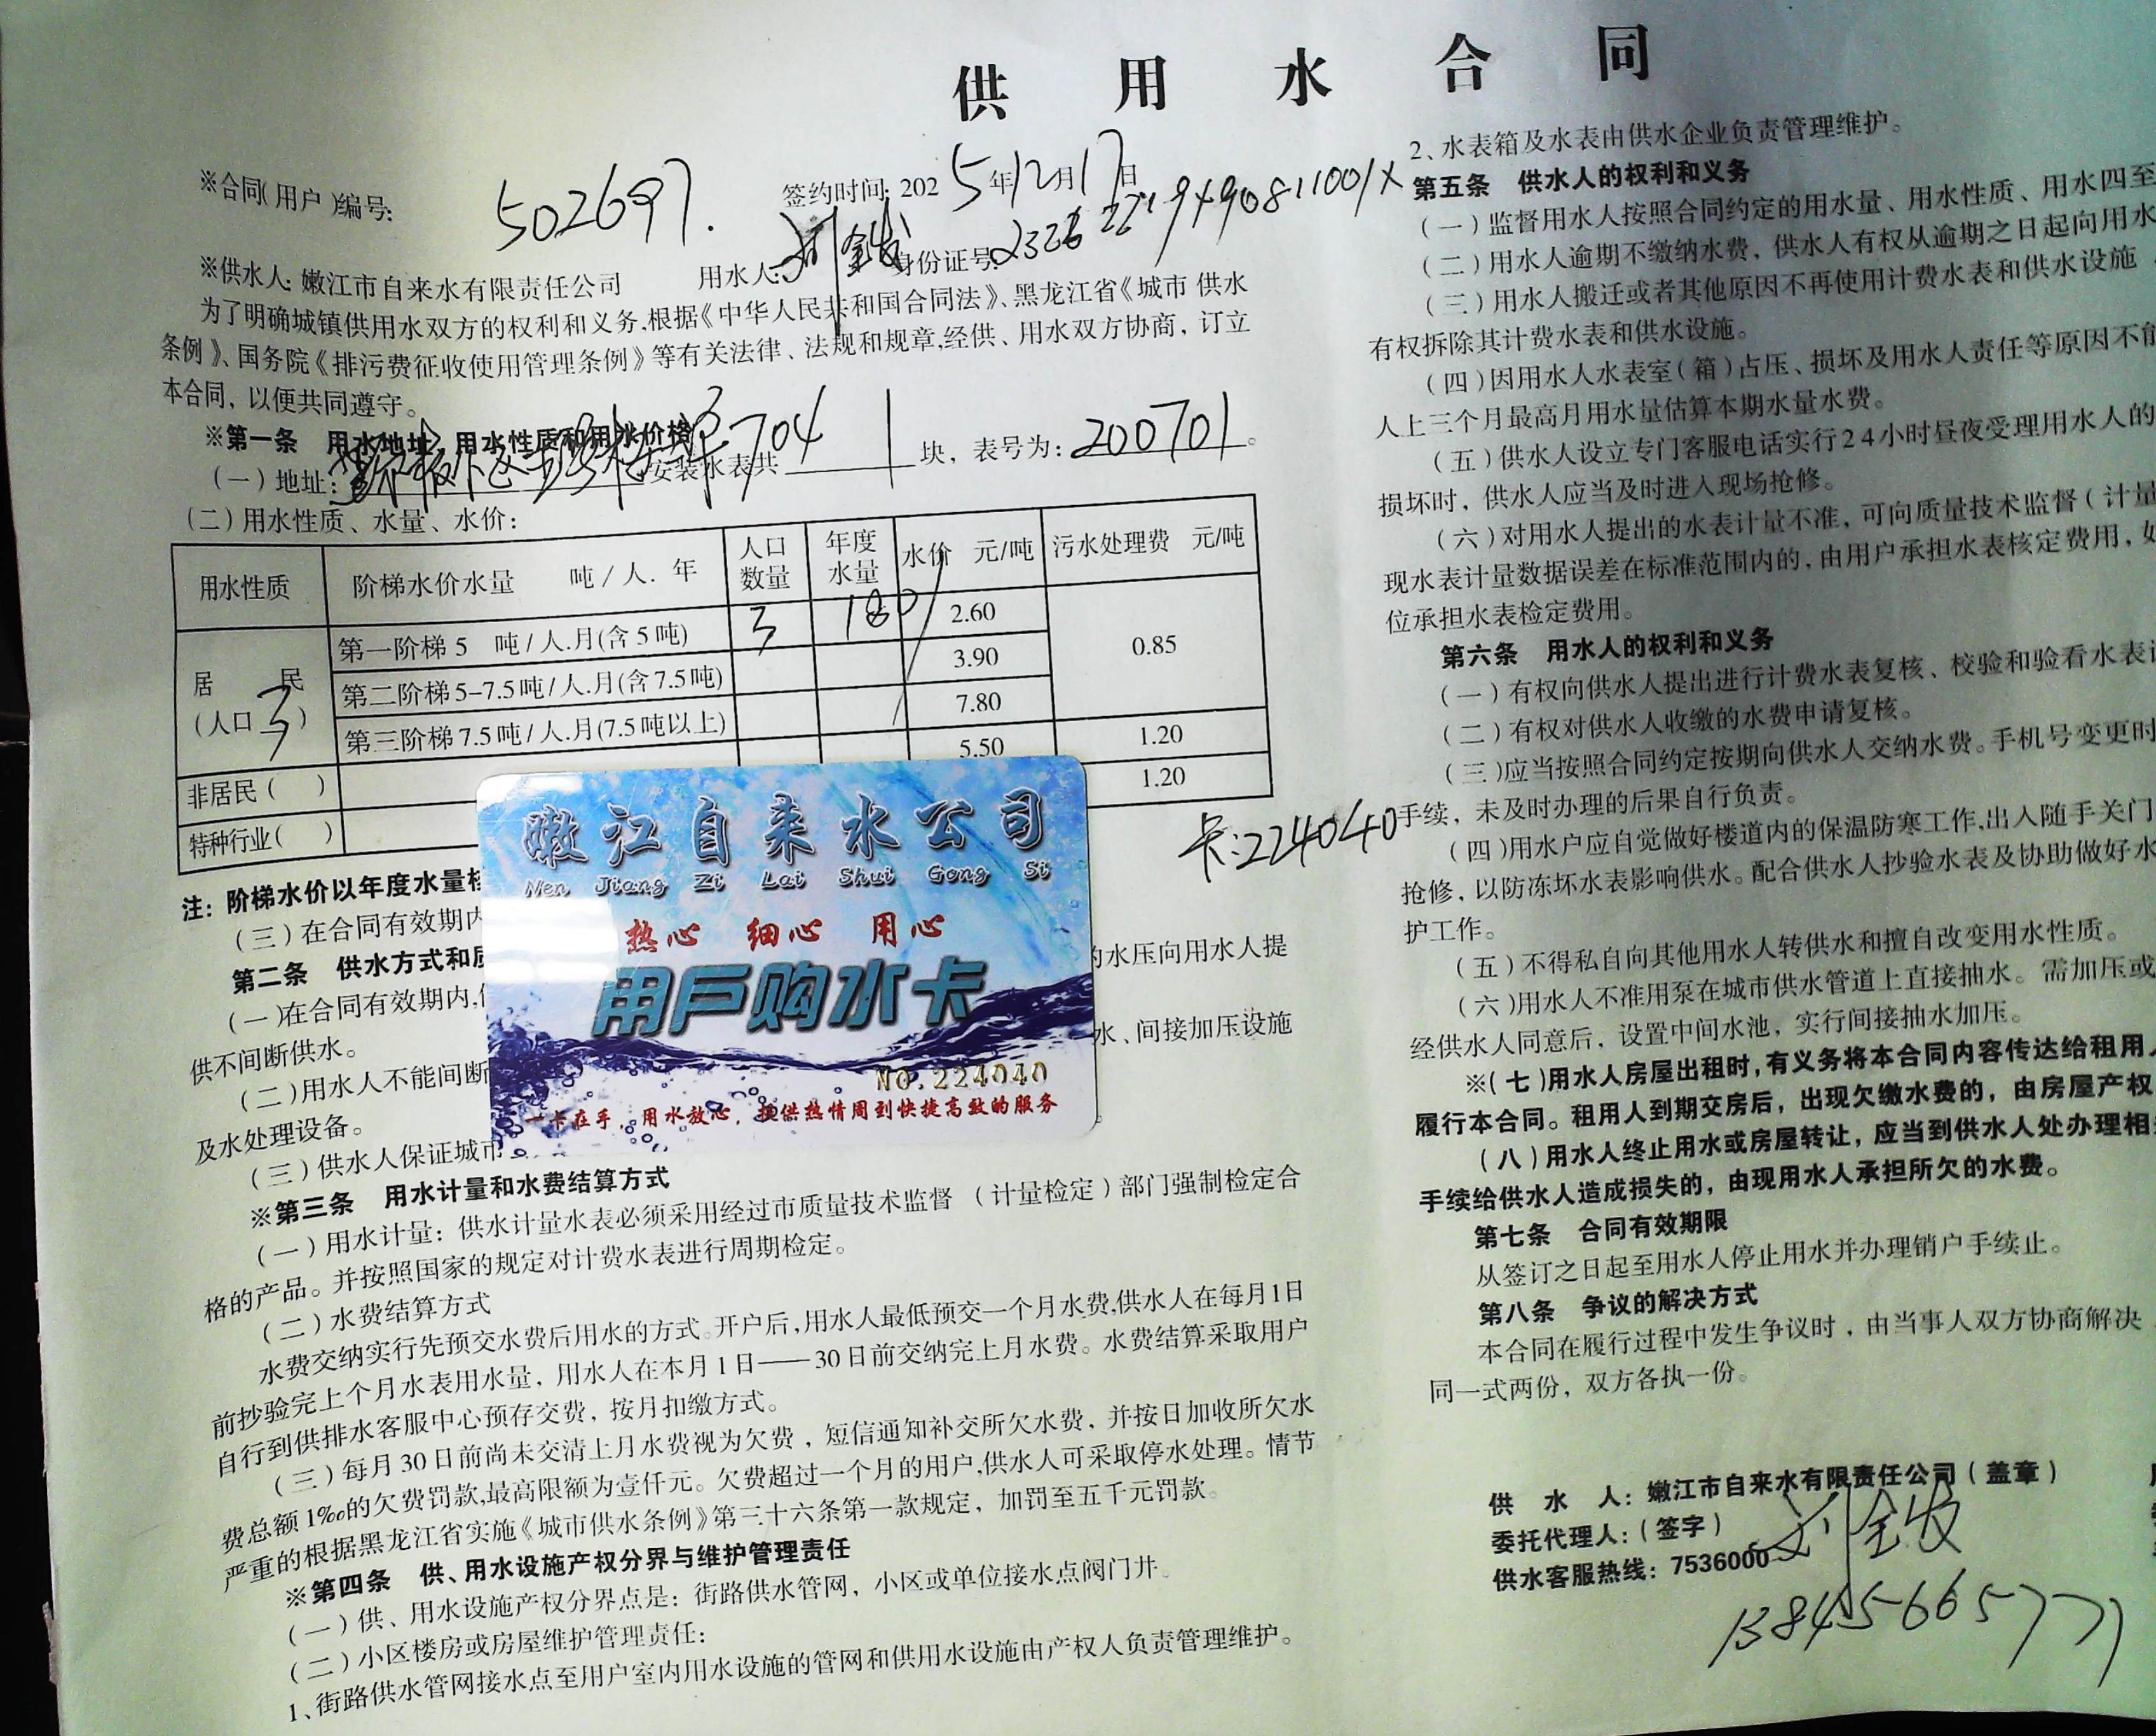 供用水合同
※合同(用户)编号: 502697.
签约时间: 2025年12月17日
※供水人: 嫩江市自来水有限责任公司 用水人: 刘金发 身份证号:
为了明确城镇供用水双方的权利和义务,根据《中华人民共和国合同法》、黑龙江省《城市 供水
条例》、国务院《排污费征收使用管理条例》等有关法律、法规和规章,经供、用水双方协商, 订立
本合同, 以便共同遵守。
※第一条 用水地址、用水性质和用水价格
(一)地址: 704 安装水表共 1 块, 表号为: 200701。
(二)用水性质、水量、水价:
用水性质 阶梯水价水量 吨/人. 年 人口数量 年度水量 水价 元/吨 污水处理费 元/吨
居民(人口3) 第一阶梯 5 吨/人.月(含5吨) 3 180 2.60 0.85
第二阶梯 5-7.5吨/人.月(含7.5吨) 3.90
第三阶梯 7.5吨/人.月(7.5吨以上) 7.80
非居民( ) 5.50 1.20
特种行业( ) 1.20
卡:224040
注: 阶梯水价以年度水量
(三)在合同有效期内
第二条 供水方式和
(一)在合同有效期内, 的水压向用水人提
供不间断供水。
(二)用水人不能间断 水、间接加压设施
及水处理设备。
(三)供水人保证城市
嫩江自来水公司
Nen Jiang Zi Lai Shui Gong Si
热心 细心 用心
用户购水卡
NO.224040
一卡在手,用水放心,提供热情周到快捷高效的服务
※第三条 用水计量和水费结算方式
(一)用水计量: 供水计量水表必须采用经过市质量技术监督 (计量检定)部门强制检定合
格的产品。并按照国家的规定对计费水表进行周期检定。
(二)水费结算方式
水费交纳实行先预交水费后用水的方式。开户后,用水人最低预交一个月水费,供水人在每月1日
前抄验完上个月水表用水量, 用水人在本月1日——30日前交纳完上月水费。水费结算采取用户
自行到供排水客服中心预存交费, 按月扣缴方式。
(三)每月30日前尚未交清上月水费视为欠费, 短信通知补交所欠水费, 并按日加收所欠水
费总额1‰的欠费罚款,最高限额为壹仟元。欠费超过一个月的用户,供水人可采取停水处理。情节
严重的根据黑龙江省实施《城市供水条例》第三十六条第一款规定, 加罚至五千元罚款。
※第四条 供、用水设施产权分界与维护管理责任
(一)供、用水设施产权分界点是: 街路供水管网, 小区或单位接水点阀门井。
(二)小区楼房或房屋维护管理责任:
1、街路供水管网接水点至用户室内用水设施的管网和供用水设施由产权人负责管理维护。
2、水表箱及水表由供水企业负责管理维护。
第五条 供水人的权利和义务
(一)监督用水人按照合同约定的用水量、用水性质、用水四至
(二)用水人逾期不缴纳水费, 供水人有权从逾期之日起向用水
(三)用水人搬迁或者其他原因不再使用计费水表和供水设施
有权拆除其计费水表和供水设施。
(四)因用水人水表室(箱)占压、损坏及用水人责任等原因不能
人上三个月最高月用水量估算本期水量水费。
(五)供水人设立专门客服电话实行24小时昼夜受理用水人的
损坏时, 供水人应当及时进入现场抢修。
(六)对用水人提出的水表计量不准, 可向质量技术监督(计量
现水表计量数据误差在标准范围内的, 由用户承担水表核定费用, 如
位承担水表检定费用。
第六条 用水人的权利和义务
(一)有权向供水人提出进行计费水表复核、校验和验看水表
(二)有权对供水人收缴的水费申请复核。
(三)应当按照合同约定按期向供水人交纳水费。手机号变更时
手续, 未及时办理的后果自行负责。
(四)用水户应自觉做好楼道内的保温防寒工作,出入随手关门
抢修, 以防冻坏水表影响供水。配合供水人抄验水表及协助做好水
护工作。
(五)不得私自向其他用水人转供水和擅自改变用水性质。
(六)用水人不准用泵在城市供水管道上直接抽水。需加压或
经供水人同意后, 设置中间水池, 实行间接抽水加压。
※(七)用水人房屋出租时, 有义务将本合同内容传达给租用人
履行本合同。租用人到期交房后, 出现欠缴水费的, 由房屋产权
(八)用水人终止用水或房屋转让, 应当到供水人处办理相
手续给供水人造成损失的, 由现用水人承担所欠的水费。
第七条 合同有效期限
从签订之日起至用水人停止用水并办理销户手续止。
第八条 争议的解决方式
本合同在履行过程中发生争议时, 由当事人双方协商解决
同一式两份, 双方各执一份。
供 水 人: 嫩江市自来水有限责任公司(盖章)
委托代理人:(签字) 刘金发
供水客服热线: 7536000
13845665771